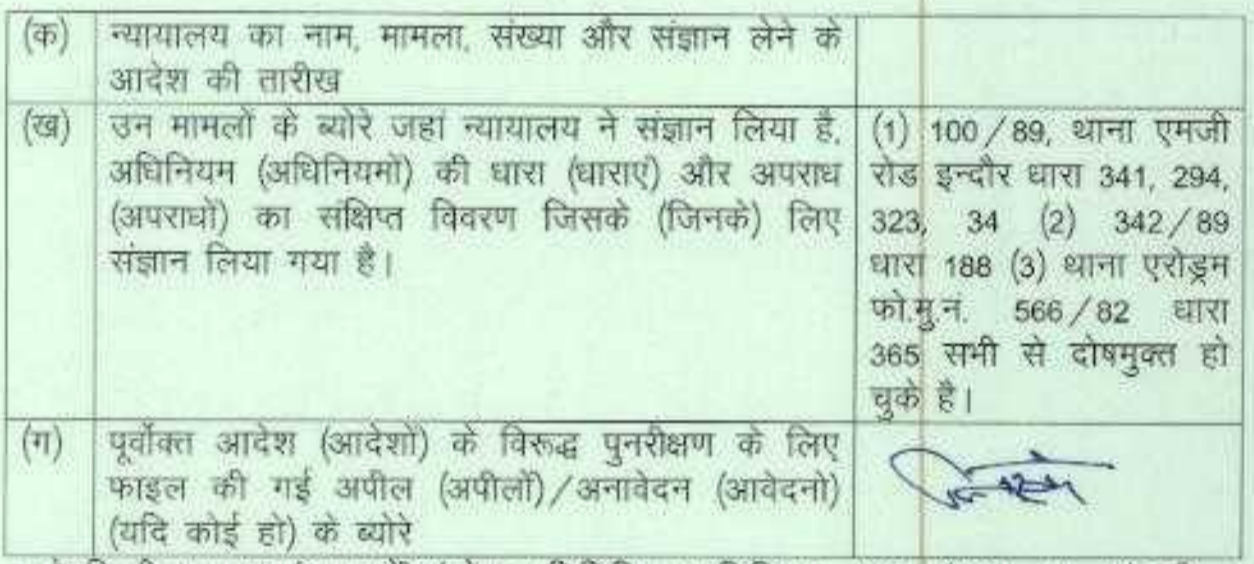 (क) न्यायालय का नाम, मामला, संख्या और संज्ञान लेने के
आदेश की तारीख
(ख) उन मामलों के ब्योरे जहां न्यायालय ने संज्ञान लिया है,
अधिनियम (अधिनियमों) की धारा (धाराएं) और अपराध
(अपराधों) का संक्षिप्त विवरण जिसके (जिनके) लिए
संज्ञान लिया गया है।
(1) 100/89, थाना एमजी
रोड इन्दौर धारा 341, 294,
323, 34 (2) 342/89
धारा 188 (3) थाना एरोड्रम
फो.मु.नं. 566/82 धारा
365 सभी से दोषमुक्त हो
चुके है।
(ग) पूर्वोक्त आदेश (आदेशों) के विरूद्ध पुनरीक्षण के लिए
फाइल की गई अपील (अपीलों)/अनावेदन (आवेदनो)
(यदि कोई हो) के ब्योरे